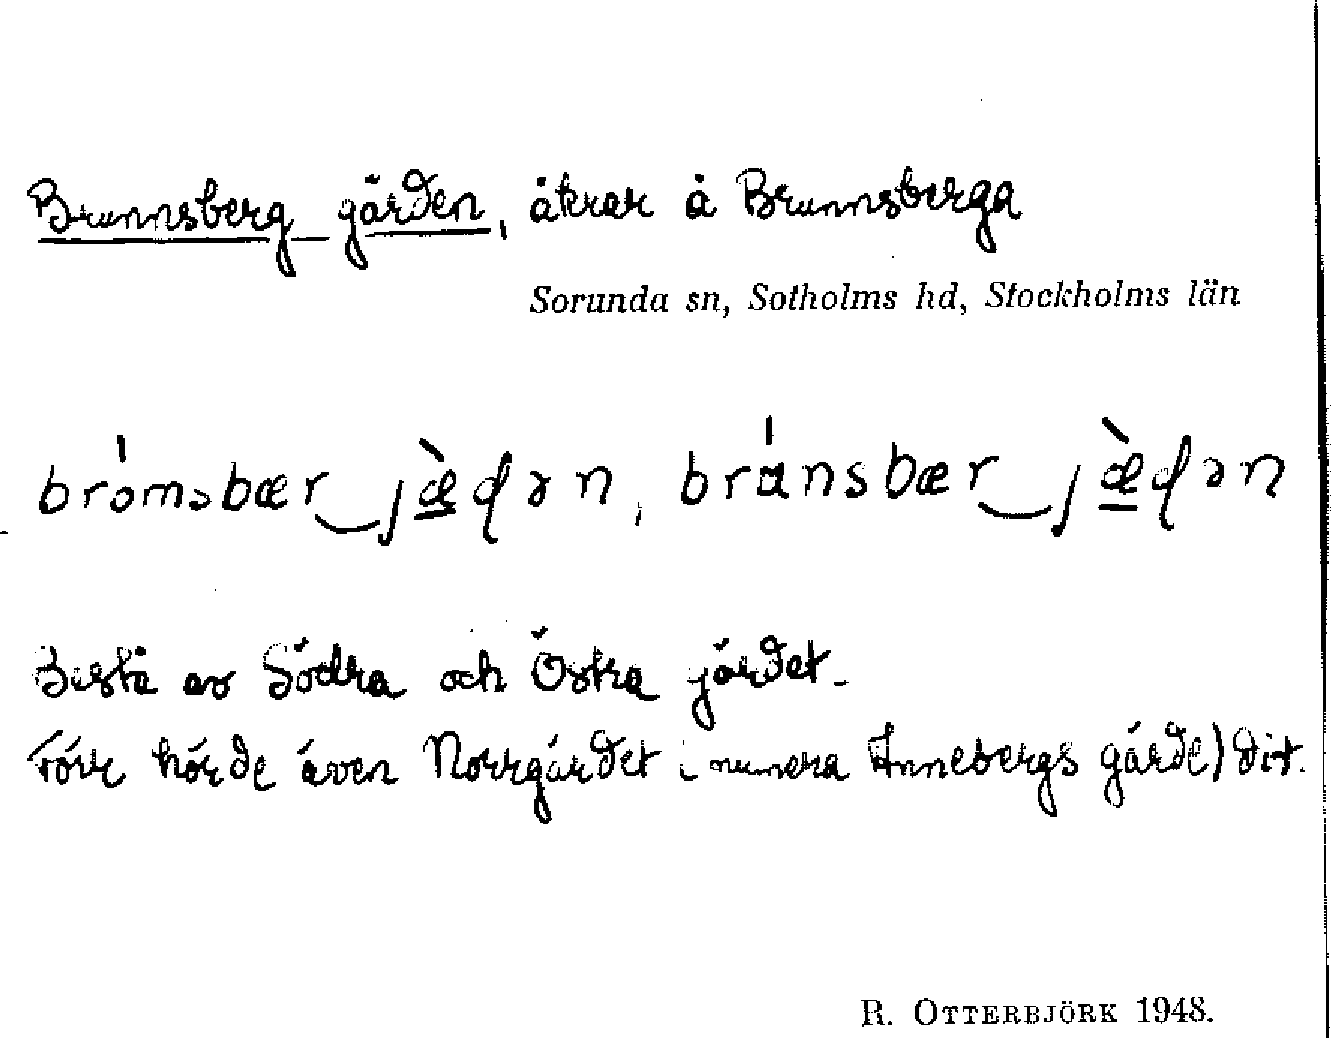 Brunnsberg gärden, åkrar å Brunnsberga
Sorunda sn, Sotholms hd, Stockholms län
bròmsbær jæ̀dən, bránsbær jæ̀dən
Bestå av Södra och Östra gärdet.
Förr hörde även Norrgärdet i numera Annebergs gärde) dit.
R. OTTERBJÖRK 1948.